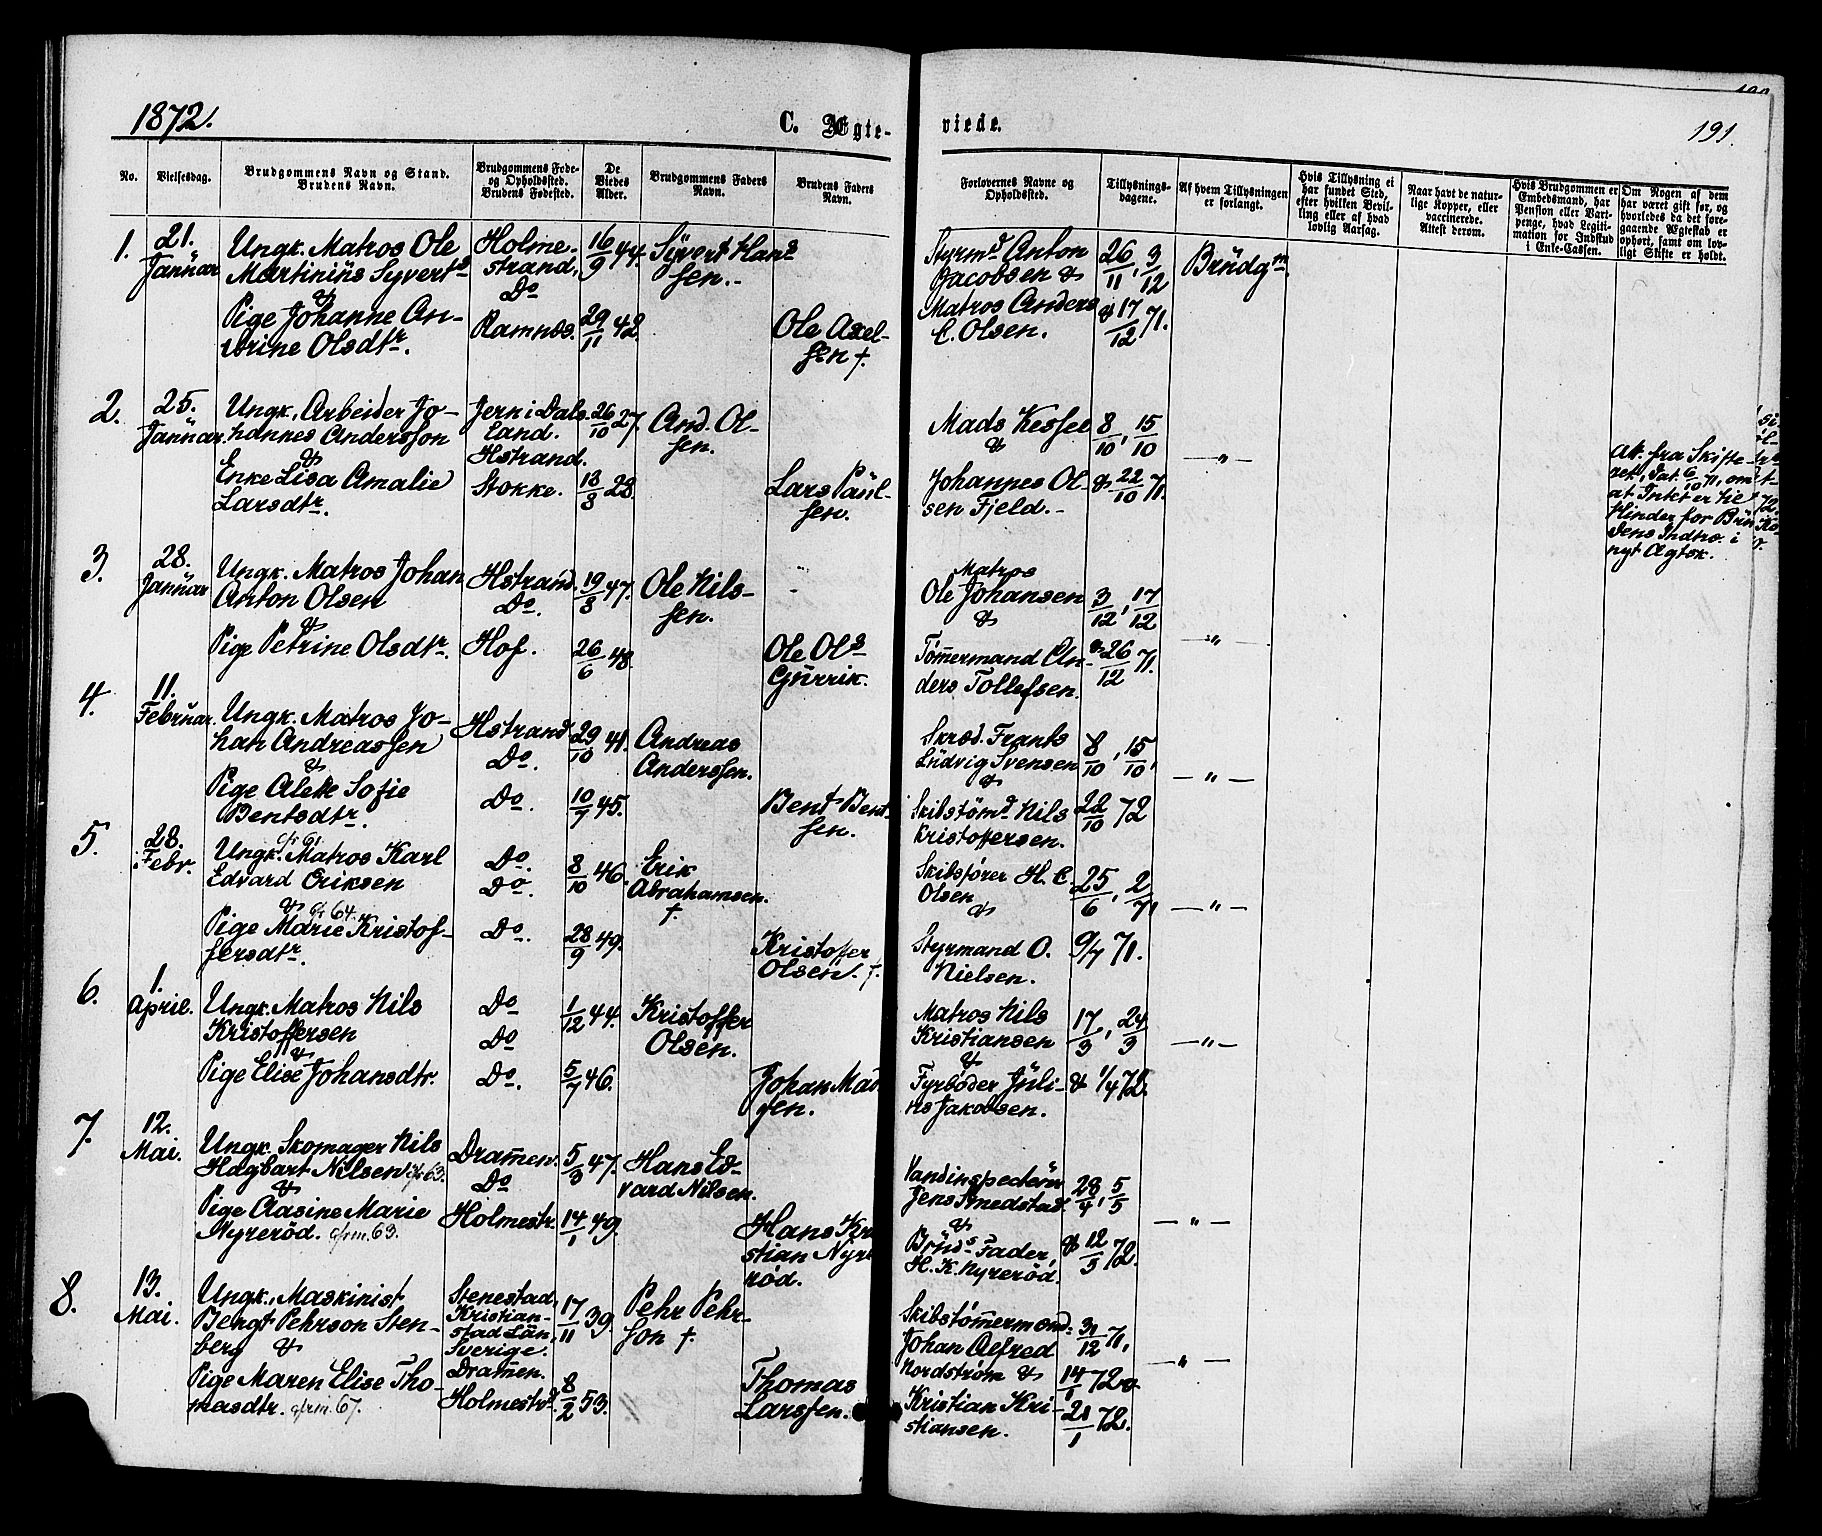 1872.
C. Ægte-
viede.
191.
No.
Vielsesdag.
Brudgommens Navn og Stand.
Brudens Navn.
Brudgommens Føde-
og Opholdssted.
Brudens Fødested.
De
Viedes
Alder.
Brudgommens Faders
Navn.
Brudens Faders
Navn.
Forlovernes Navne og
Opholdssted.
Tillysnings-
dagene.
Af hvem Tillysningen
er forlangt.
Hvis Tillysning ei
har fundet Sted,
efter hvilken Bevil-
ling eller af hvad
lovlig Aarsag.
Naar havt de natur-
lige Kopper, eller
vaccinerede.
Attest derom.
Hvis Brudgommen er
Embedsmand, har
Pension eller Vart-
penge, hvad Legiti-
mation for Indskud
i Enke-Cassen.
Om Nogen af dem
har været gift før, og
hvorledes da det fore-
gaaende Ægteskab er
ophørt, samt om lov-
ligt Skifte er holdt.
1.
21.
Januar
Ungk. Matros Ole
Martinius Syverts
&
Pige Johanne An-
drine Olsdtr.
Holme-
strand,
Do
Ramnes.
16/9 44.
29/11 42.
Syvert Hans
sen.
Ole Axel-
sen †.
Styrmd Anton
Jacobsen &
Matros Anders
C. Olsen.
26/11, 3/12
& 17/12 71.
Brudgm.
2.
25.
Januar
Ungk. Arbeider Jo-
hannes Andersson
&
Enke Lisa Amalie
Larsdtr.
Jern i Dals
Land.
Hstrand.
Stokke.
26/10 27.
13/8 28.
And. Ol-
sen.
Lars Paul-
sen.
Mads Kessel
&
Johannes Ol-
sen Fjeld.
8/10, 15/10
& 22/10 71.
— " —
At. fra Skifte-
ret, Dat. 6/10 71, om
at Intet er til
Hinder for Bru
dens Indtr. i
nyt Ægtsk.
3.
28.
Januar
Ungk. Matros Johan
Anton Olsen
&
Pige Petrine Olsdtr.
Hstrand.
Do.
Hof.
19/8 47.
26/6 48.
Ole Nils-
sen.
Ole Ols
Gurrik.
Matros
Ole Johansen
&
Tømmermand An-
ders Tollefsen.
3/12, 17/12
& 26/12 71.
— " —
4.
11.
Februar.
Ungk. Matros Jo-
han Andreassen
&
Pige Alette Sofie
Bentsdtr.
Hstrand
Do.
Do.
29/10 41.
10/7 45.
Andreas
Anderssen.
Bent Bent-
sen.
Skræd. Frants
Ludvig Svensen
&
Skibstømd Nils
Kristoffersen.
8/10, 15/10,
22/10 72
— " —
5.
28.
Febr.
cfr 61
Ungk. Matros Karl
Edvard Eriksen
& cfr 64.
Pige Marie Kristof-
fersdtr.
Do.
Do.
Do.
8/10 46.
28/9 49.
Erik
Abrahamsen.
†
Kristoffer
Olsen. †.
Skibsfører H. C.
Olsen
&
Styrmand O.
Nielsen.
25/6, 2/7,
9/7 71.
— " —
6.
1.
April.
Ungk. Matros Nils
Kristoffersen
&
Pige Elise Johansdtr.
Do
Do
Do.
1/12 44.
5/7 46.
Kristoffer
Olsen.
Johan Mad
sen.
Matros Nils
Kristiansen
&
Fyrbøder Juli-
us Jakobsen.
17/3, 24/3
& 1/4 72.
— " —
7.
12.
Mai.
Ungk. Skomager Nils
Hagbart Nilsen cfr 63.
&
Pige Aasine Marie
Nyrerød. cfrm. 63.
Drammen.
Do
Holmestr.
5/3 47.
14/1 49.
Hans Ed-
vard Nilsen.
Hans Kri
stian Nyre
rød.
Vandinspectør
Jens Smedstad
&
Bruds Fader,
H. K. Nyrerød.
28/4, 5/5
& 12/5 72.
— " —
8.
13.
Mai.
Ungk., Maskinist
Bengt Pehrson Sten-
berg &
Pige Maren Elise Tho-
masdtr. cfrm. 67.
Stenestad,
Kristian-
stad Län,
Sverige.
Drammen.
Holmestrd
17/11 39.
8/2 53.
Pehr Pehr-
son †.
Thomas
Larssen.
Skibstømmermand
Johan Alfred
Nordstrøm &
Kristian Kri-
stiansen.
31/12 71,
14/1 72 &
21/1 72.
— " —